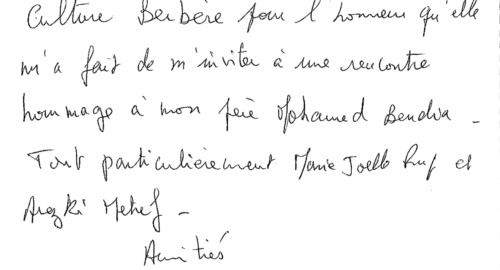 Culture Berbère pour l'honneur qu'elle
m'a fait de m'inviter à une rencontre
hommage à mon père Mohamed Bendia -
Tout particulièrement Marie Joelle Ruf et
Arezki Metref -
Amitiés